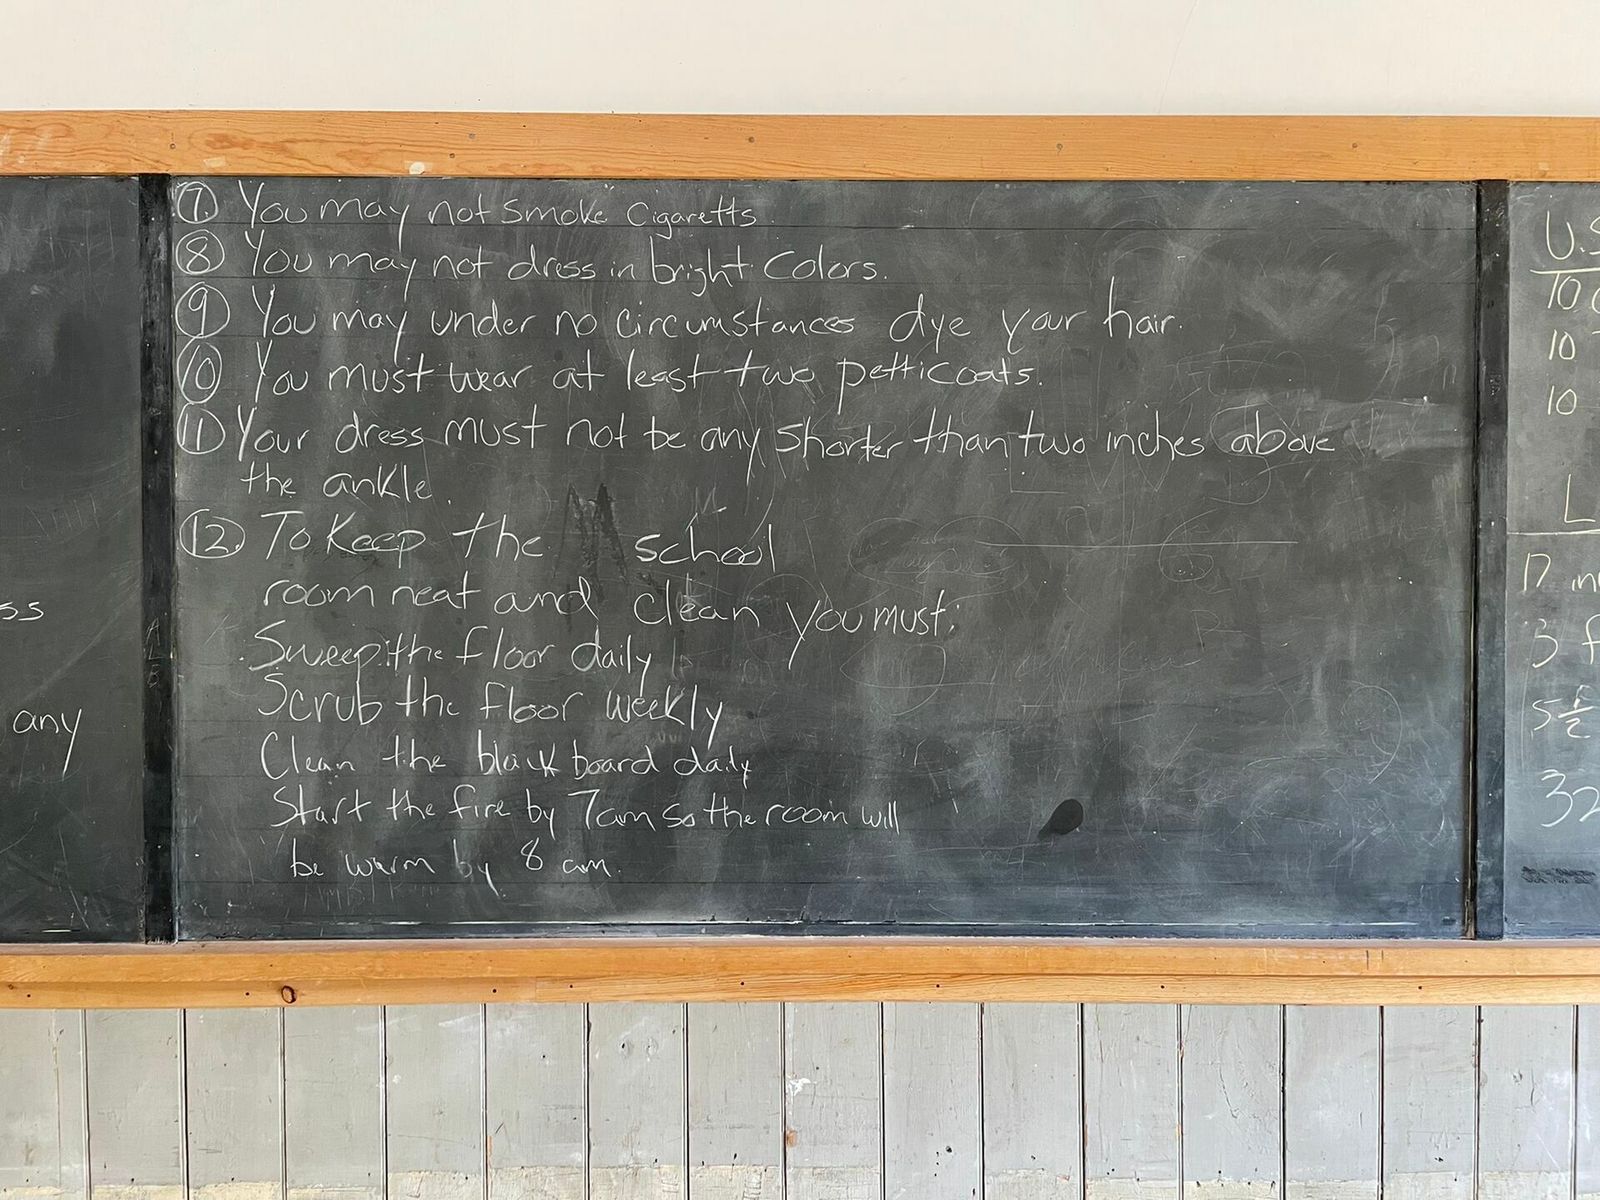 ss
any
7. You may not smoke cigaretts
8 You may not dress in bright colors.
9 You may under no circumstances dye your hair.
10 You must wear at least two petticoats.
11 Your dress must not be any shorter than two inches above
the ankle.
12. To Keep the school
room neat and clean you must:
Sweep the floor daily
Scrub the floor weekly
Clean the black board daily
Start the fire by 7am so the room will
be warm by 8 am.
U.S
10
10
10
L
in
3 f
32